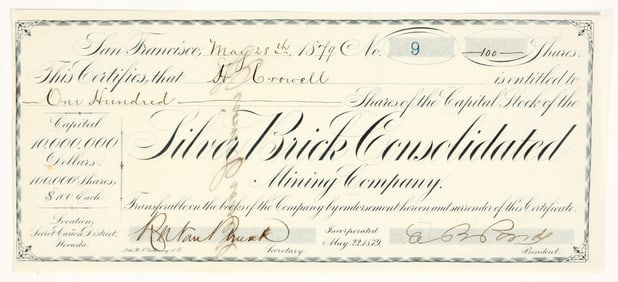 San Francisco, May 28th, 1879 No. 9 100 Shares.
This Certifies, that H. Crowell is entitled to
One Hundred Shares of the Capital Stock of the
Silver Brick Consolidated
Mining Company.
Capital
10,000,000
Dollars.
100,000 Shares,
$100 Each.
Transferable on the books of the Company by endorsement hereon and surrender of this Certificate.
Location,
Secret Canon District,
Nevada.
Secretary
Incorporated
May 22, 1879.
President.